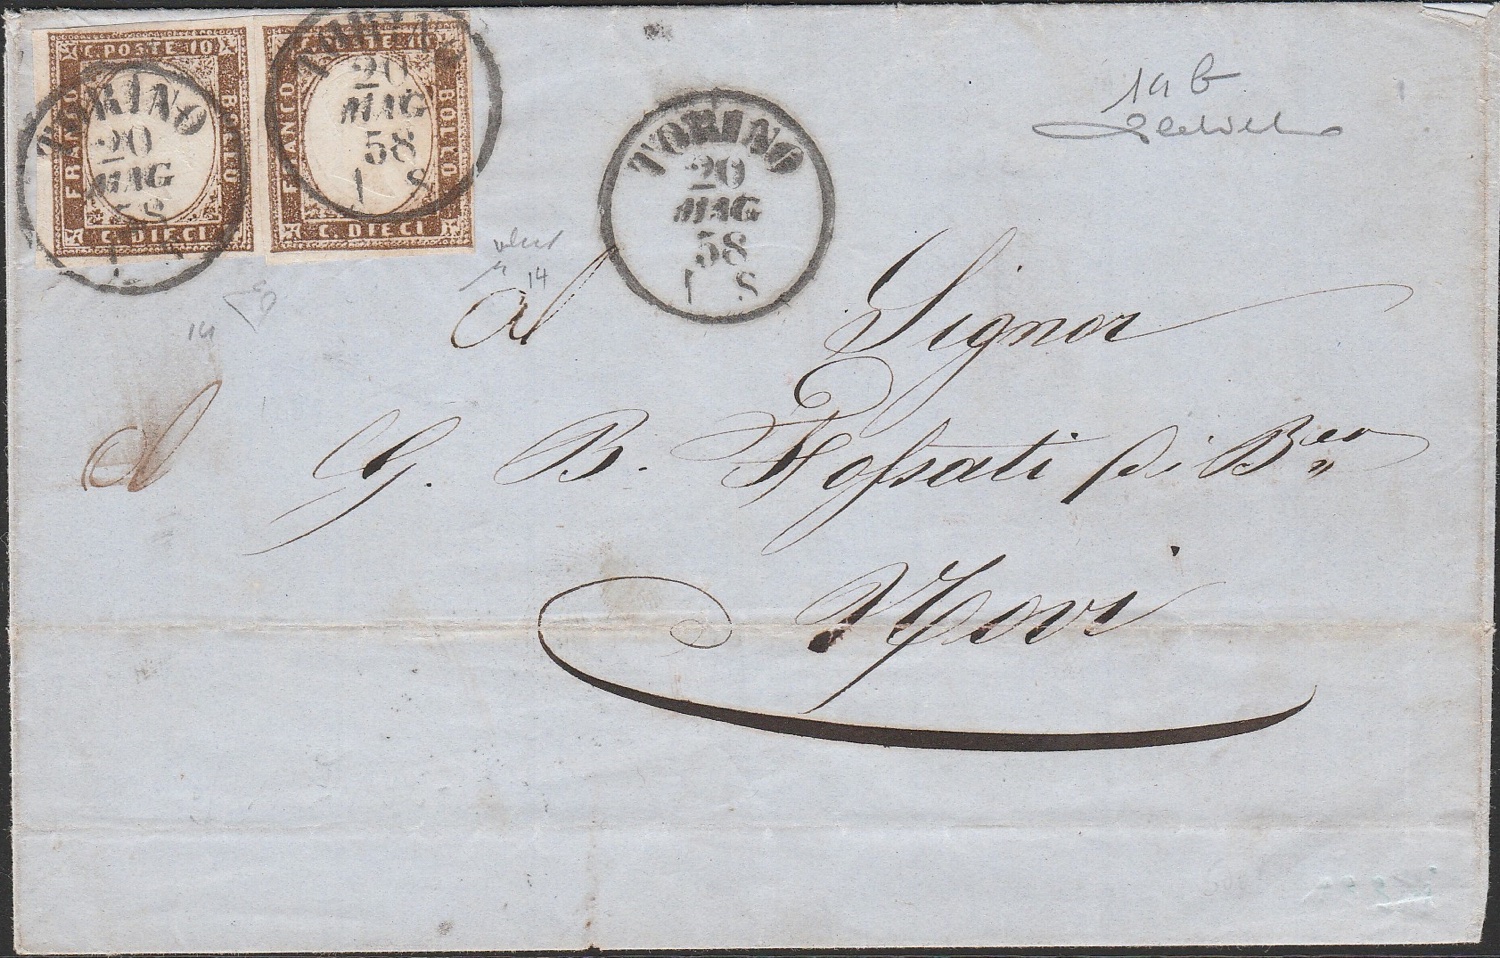 C. POSTE 10
FRANCO
BOLLO
C. DIECI
TORINO
20
MAG
58
C. POSTE 10
FRANCO
BOLLO
C. DIECI
TORINO
20
MAG
58
1 S
TORINO
20
MAG
58
1 S
14 b
14
14
Al Signor
A
G. B. Fossati di Beo
Novi